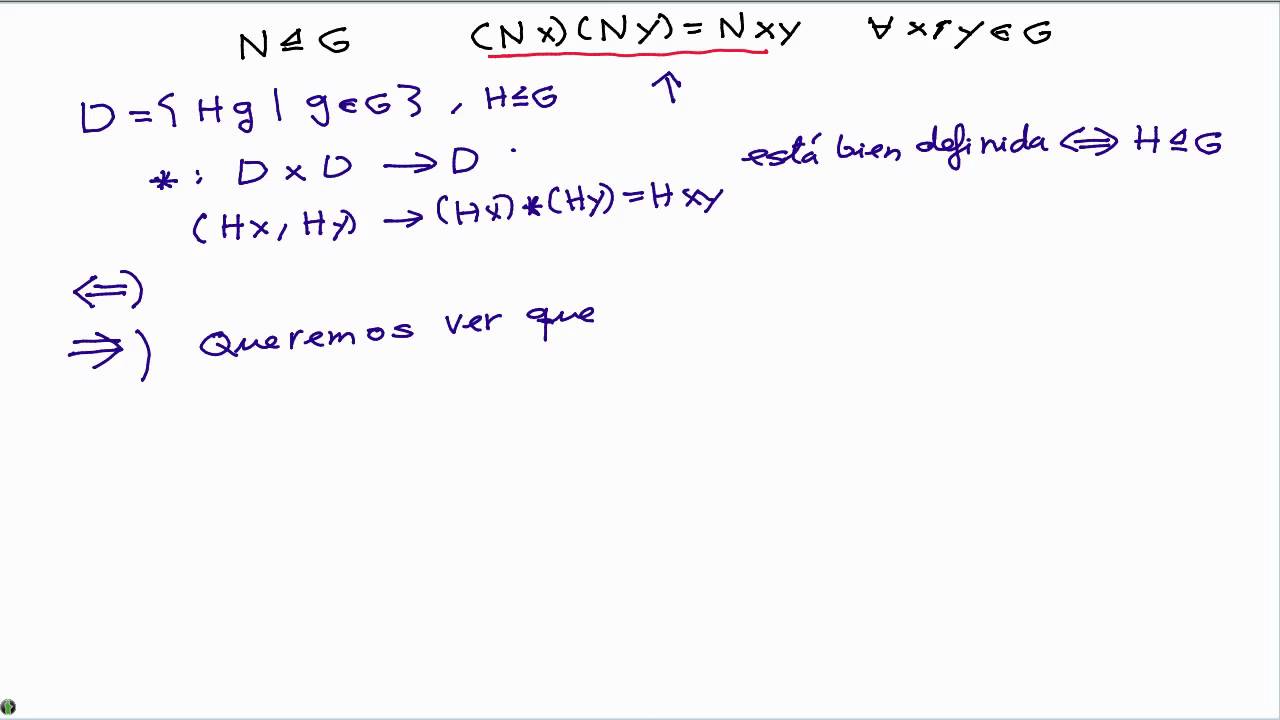 N ⊴ G (Nx)(Ny) = Nxy ∀ x, y ∈ G
D = { Hg | g ∈ G } , H ≤ G ↑
* : D x D → D está bien definida ⟺ H ⊴ G
(Hx, Hy) → (Hx) * (Hy) = Hxy
⟸)
⇒) Queremos ver que